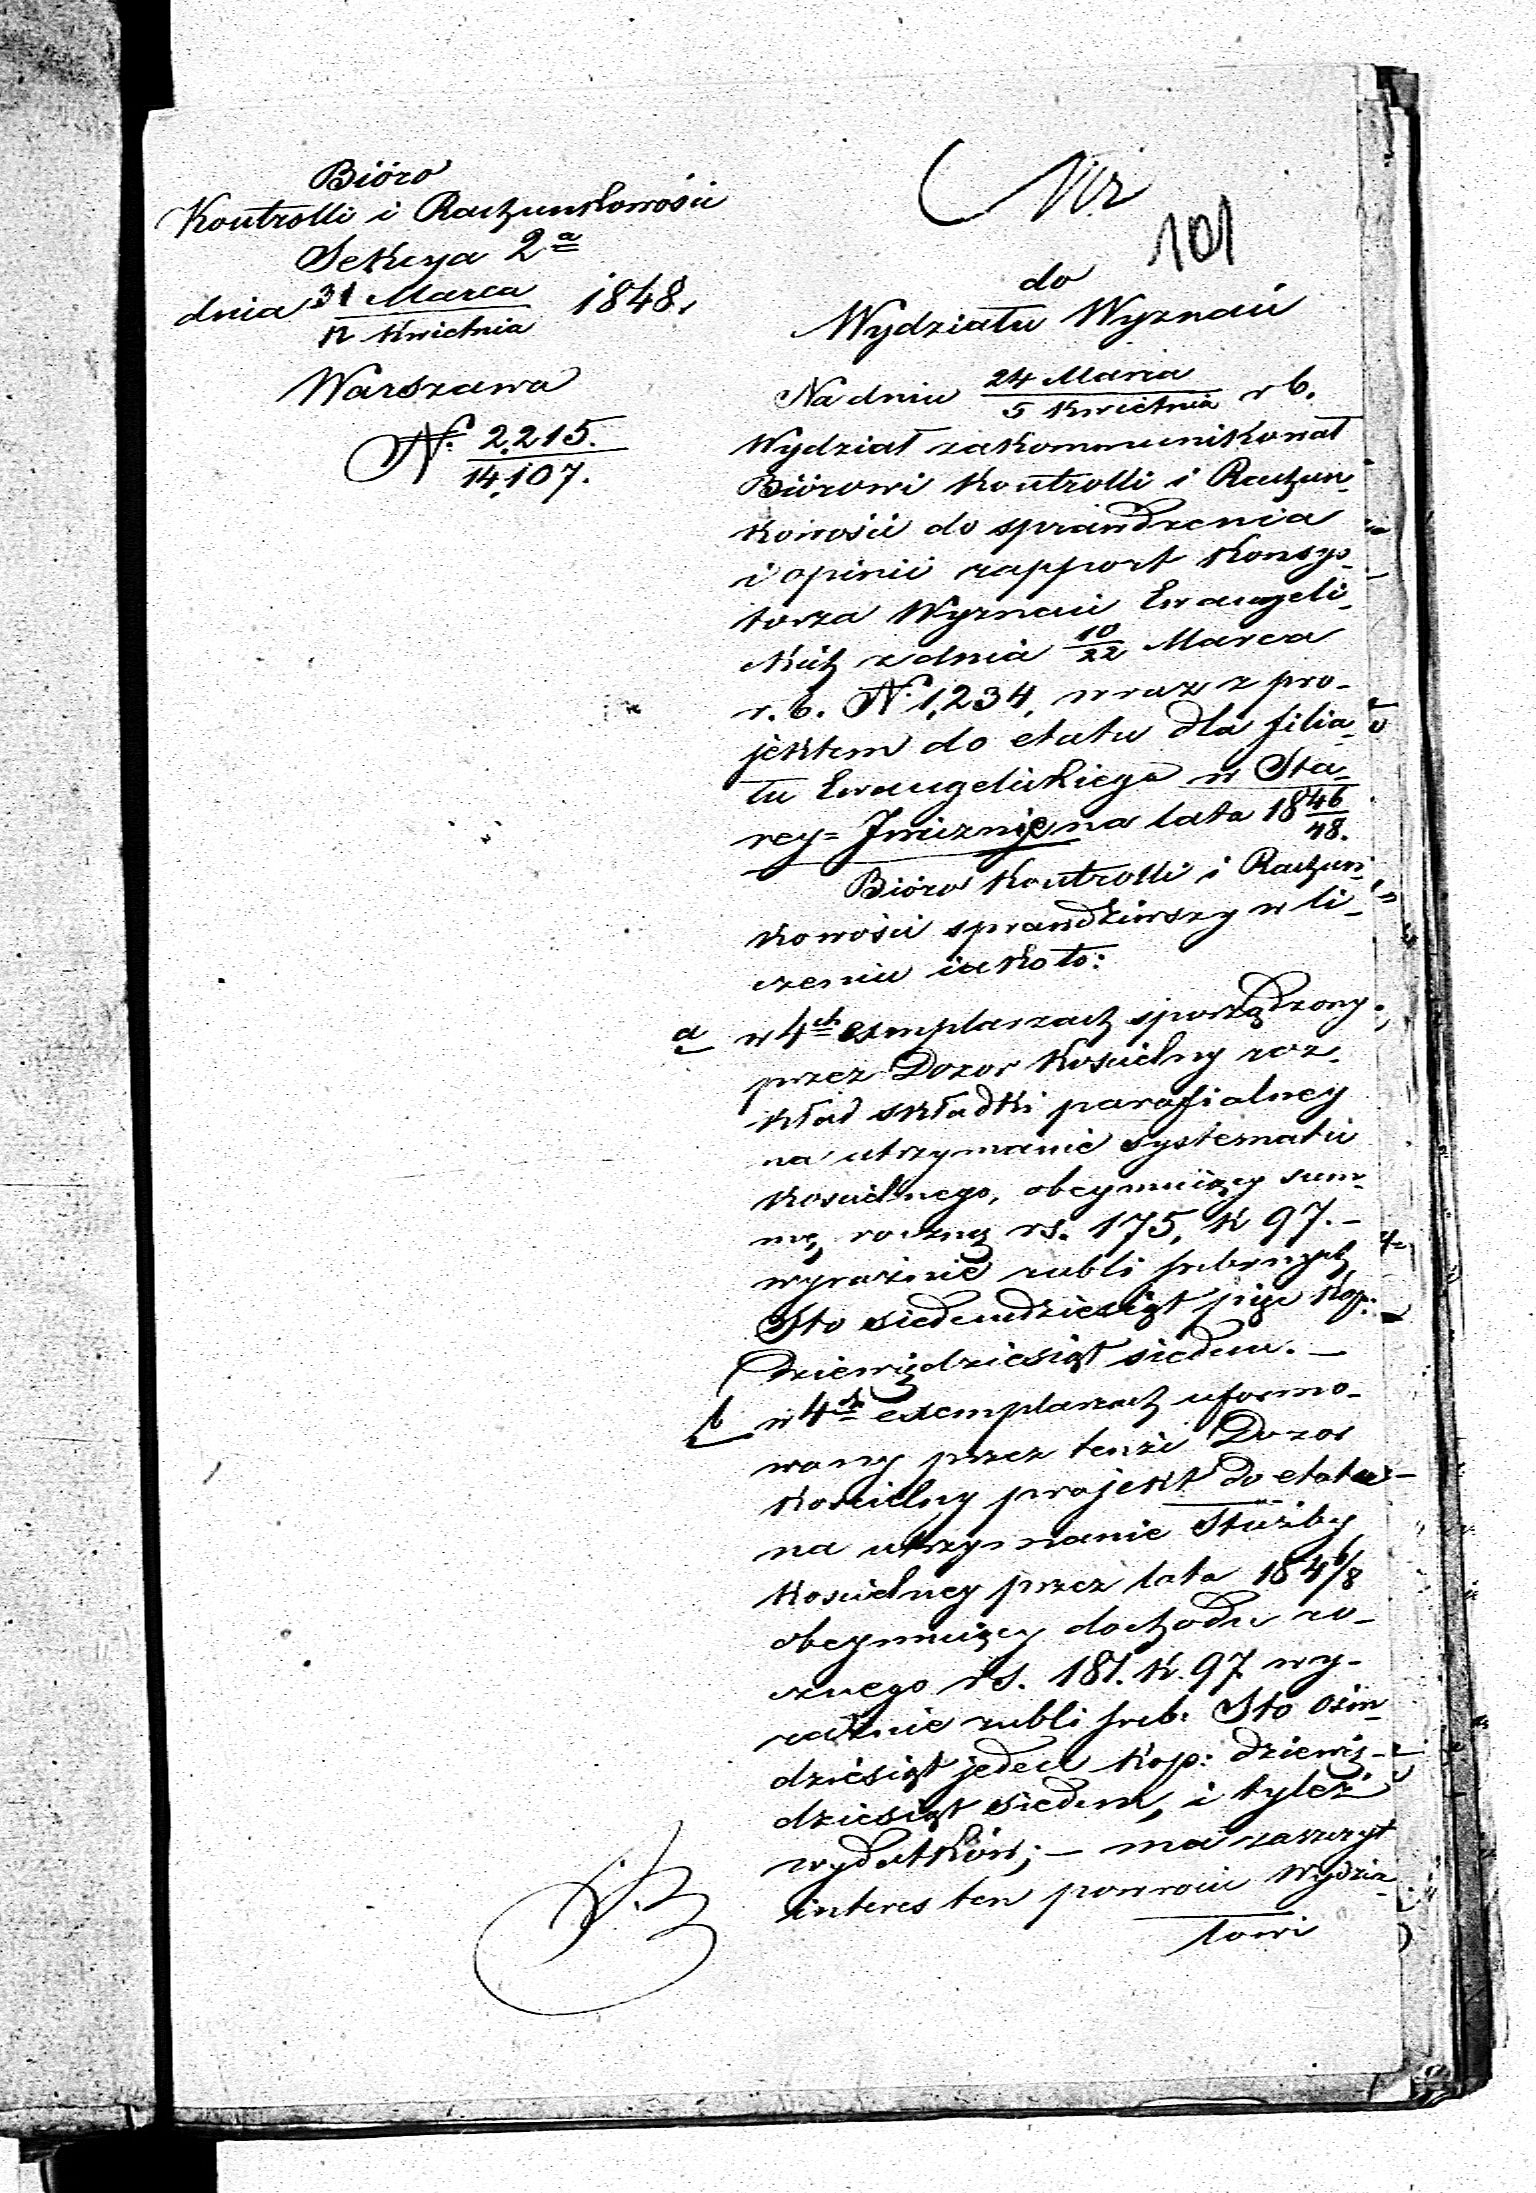 Bióro
Kontrolli i Rachunkowości
Sekcya 2a
dnia 31 Marca 1848.
12 Kwietnia
Warszawa
N. 2,215.
14,107.
101
do
Wydziału Wyznań
Na dniu 24 Marca r b.
5 Kwietnia
Wydział zakommunikował
Biórowi Kontrolli i Rachun-
kowości do sprawdzenia
i opinii rapport Konsys-
torza Wyznań Ewangeli-
ckich z dnia 10/22 Marca
r. b. N. 1,234, wraz z pro-
jektem do etatu dla filia-
łu Ewangelickiego w Sta-
rey= Iwicznie na lata 1846/48.
Bióro Kontrolli i Rachun-
kowości sprawdziwszy w li-
czeniu iako to:
a w 4ch exemplarzach sporządzony
przez Dozór Kościelny roz-
kład składki parafialney
na utrzymanie systematu
Kościelnego, obeymuiący sum-
mę roczną rs. 175, k 97. -
wyraźnie rubli srebrnych
Sto siedemdziesiąt pięć kop:
dziewięćdziesiąt siedem. -
b w 4ch exemplarzach uformo-
wany przez tenże Dozór
Kościelny projekt do etatu -
na utrzymanie Służby
Kościelney przez lata 1846/8
obeymuiący dochodu ro-
cznego rs. 181. k. 97 wy-
raźnie rubli sreb: Sto ośm-
dziesiąt jeden kop: dziewię-
dziesiąt siedem, i tyleż
wydatków; - ma zaszczyt
interes ten powrócić Wydzia-
łowi